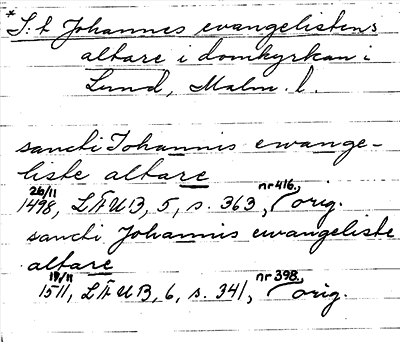 *S:t Johannes evangelistens
altare i domkyrkan i
Lund, Malm. l.
sancti Johannis ewange-
liste altare
26/11 1498, LÄUB, 5, s. 363, nr 416, orig.
sancti Johannis ewangeliste
altare
19/11 1511, LÄUB, 6, s. 341, nr 398, orig.